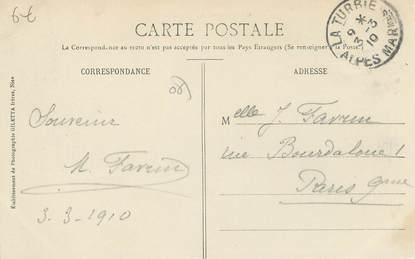 6€
CARTE POSTALE
La Correspondance au recto n'est pas acceptée par tous les Pays Etrangers (Se renseigner à la Poste)
LA TURBIE
3-3
10
ALPES MARmes
CORRESPONDANCE
ADRESSE
(06)
Souvenir
3-3-1910
Melle J.
rue Bourdaloue 1
Paris 9me
Etablissement de Photographie GILETTA frères, Nice